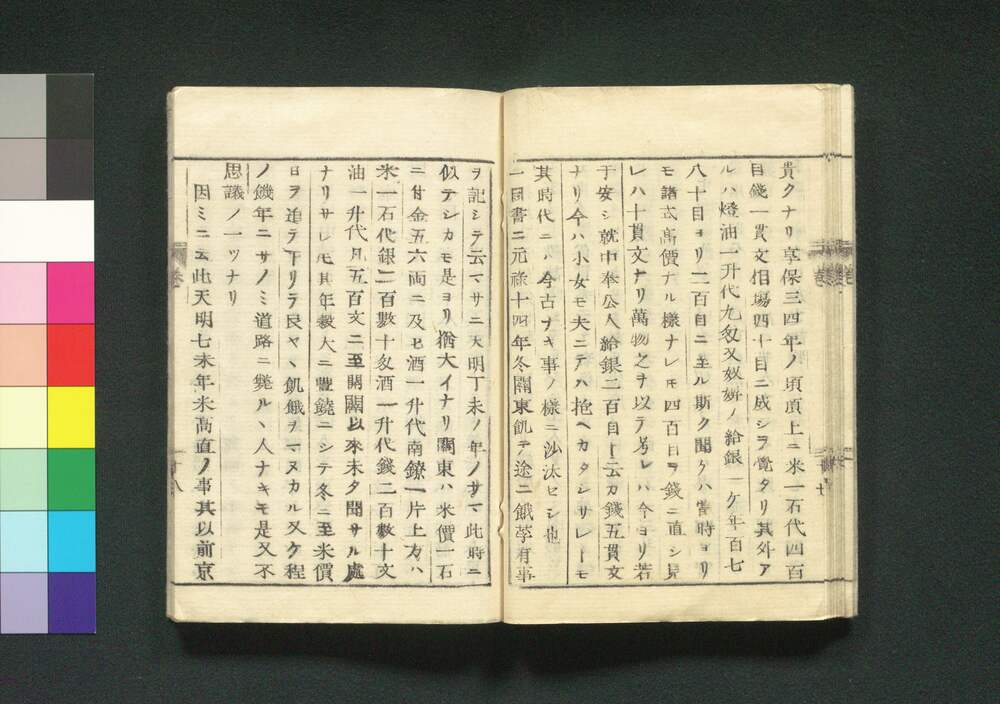 貴クナリ享保三四年ノ頃頂上ニ米一石代四百
目錢一貫文相場四十目ニ成シヲ覺タリ其外ア
ルハ燈油一升代九匁又奴婢ノ給銀一ケ年百七
八十目ヨリ二百目ニ至ル斯ク聞クハ當時ヨリ
モ諸式高價ナル様ナレモ四百目ヲ錢ニ直シ見
レハ十貫文ナリ萬物之ヲ以テ考レハ今ヨリ若
于安シ就中奉公人給銀二百目ト云カ錢五貫文
ナリ今ハ小女モ夫ニテハ抱ヘカタシサレトモ
其時代ニハ今古ナキ事ノ様ニ沙汰セシ也
一固書ニ元祿十四年冬關東飢テ途ニ餓莩有事
ヲ記シテ云マサニ天明丁未ノ年ノサマ此時ニ
似テシカモ是ヨリ猶大イナリ關東ハ米價一石
ニ付金五六両ニ及ヒ酒一升代南鐐一片上方ハ
米一石代銀二百數十匁酒一升代錢二百數十文
油一升代凡五百文ニ至開闢以來未タ聞サル處
ナリサレモ其年穀大ニ豐饒ニシテ冬ニ至米價
日ヲ追テ下リテ民ヤヽ飢餓ヲマヌカル又ケ程
ノ饑年ニサノミ道路ニ斃ルヽ人ナキモ是又不
思議ノ一ツナリ
因ミニ云此天明七未年米高直ノ事其以前京
十八